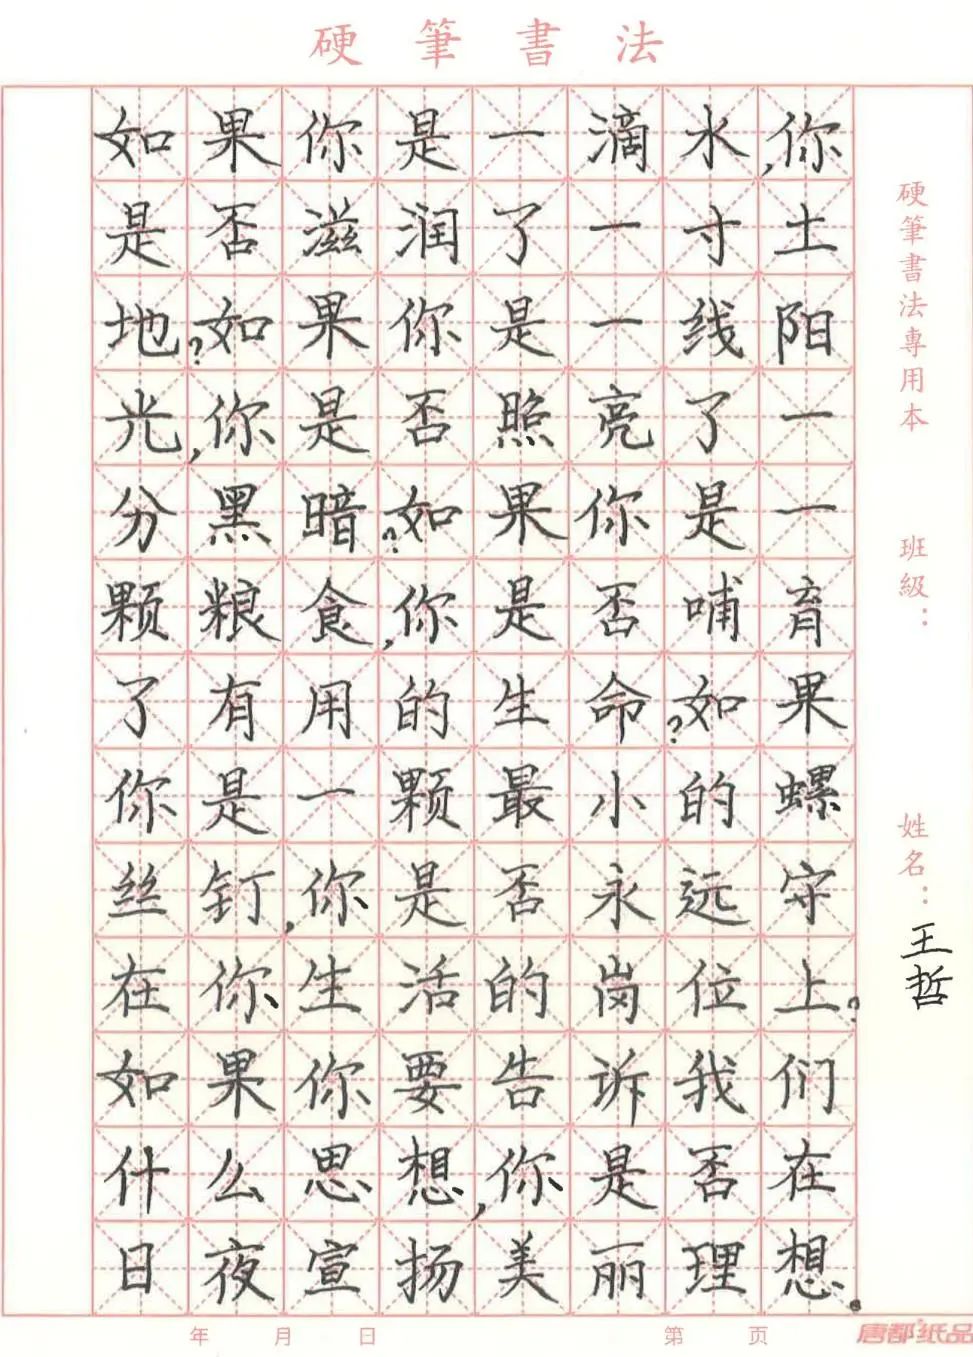 硬筆書法
如果你是一滴水,你
是否滋润了一寸土
地?如果你是一线阳
光,你是否照亮了一
分黑暗?如果你是一
颗粮食,你是否哺育
了有用的生命?如果
你是一颗最小的螺
丝钉,你是否永远守
在你生活的岗位上。
如果你要告诉我们
什么思想,你是否在
日夜宣扬美丽理想。
硬筆書法專用本
班級:
姓名:王哲
年 月 日 第 页
唐都纸品